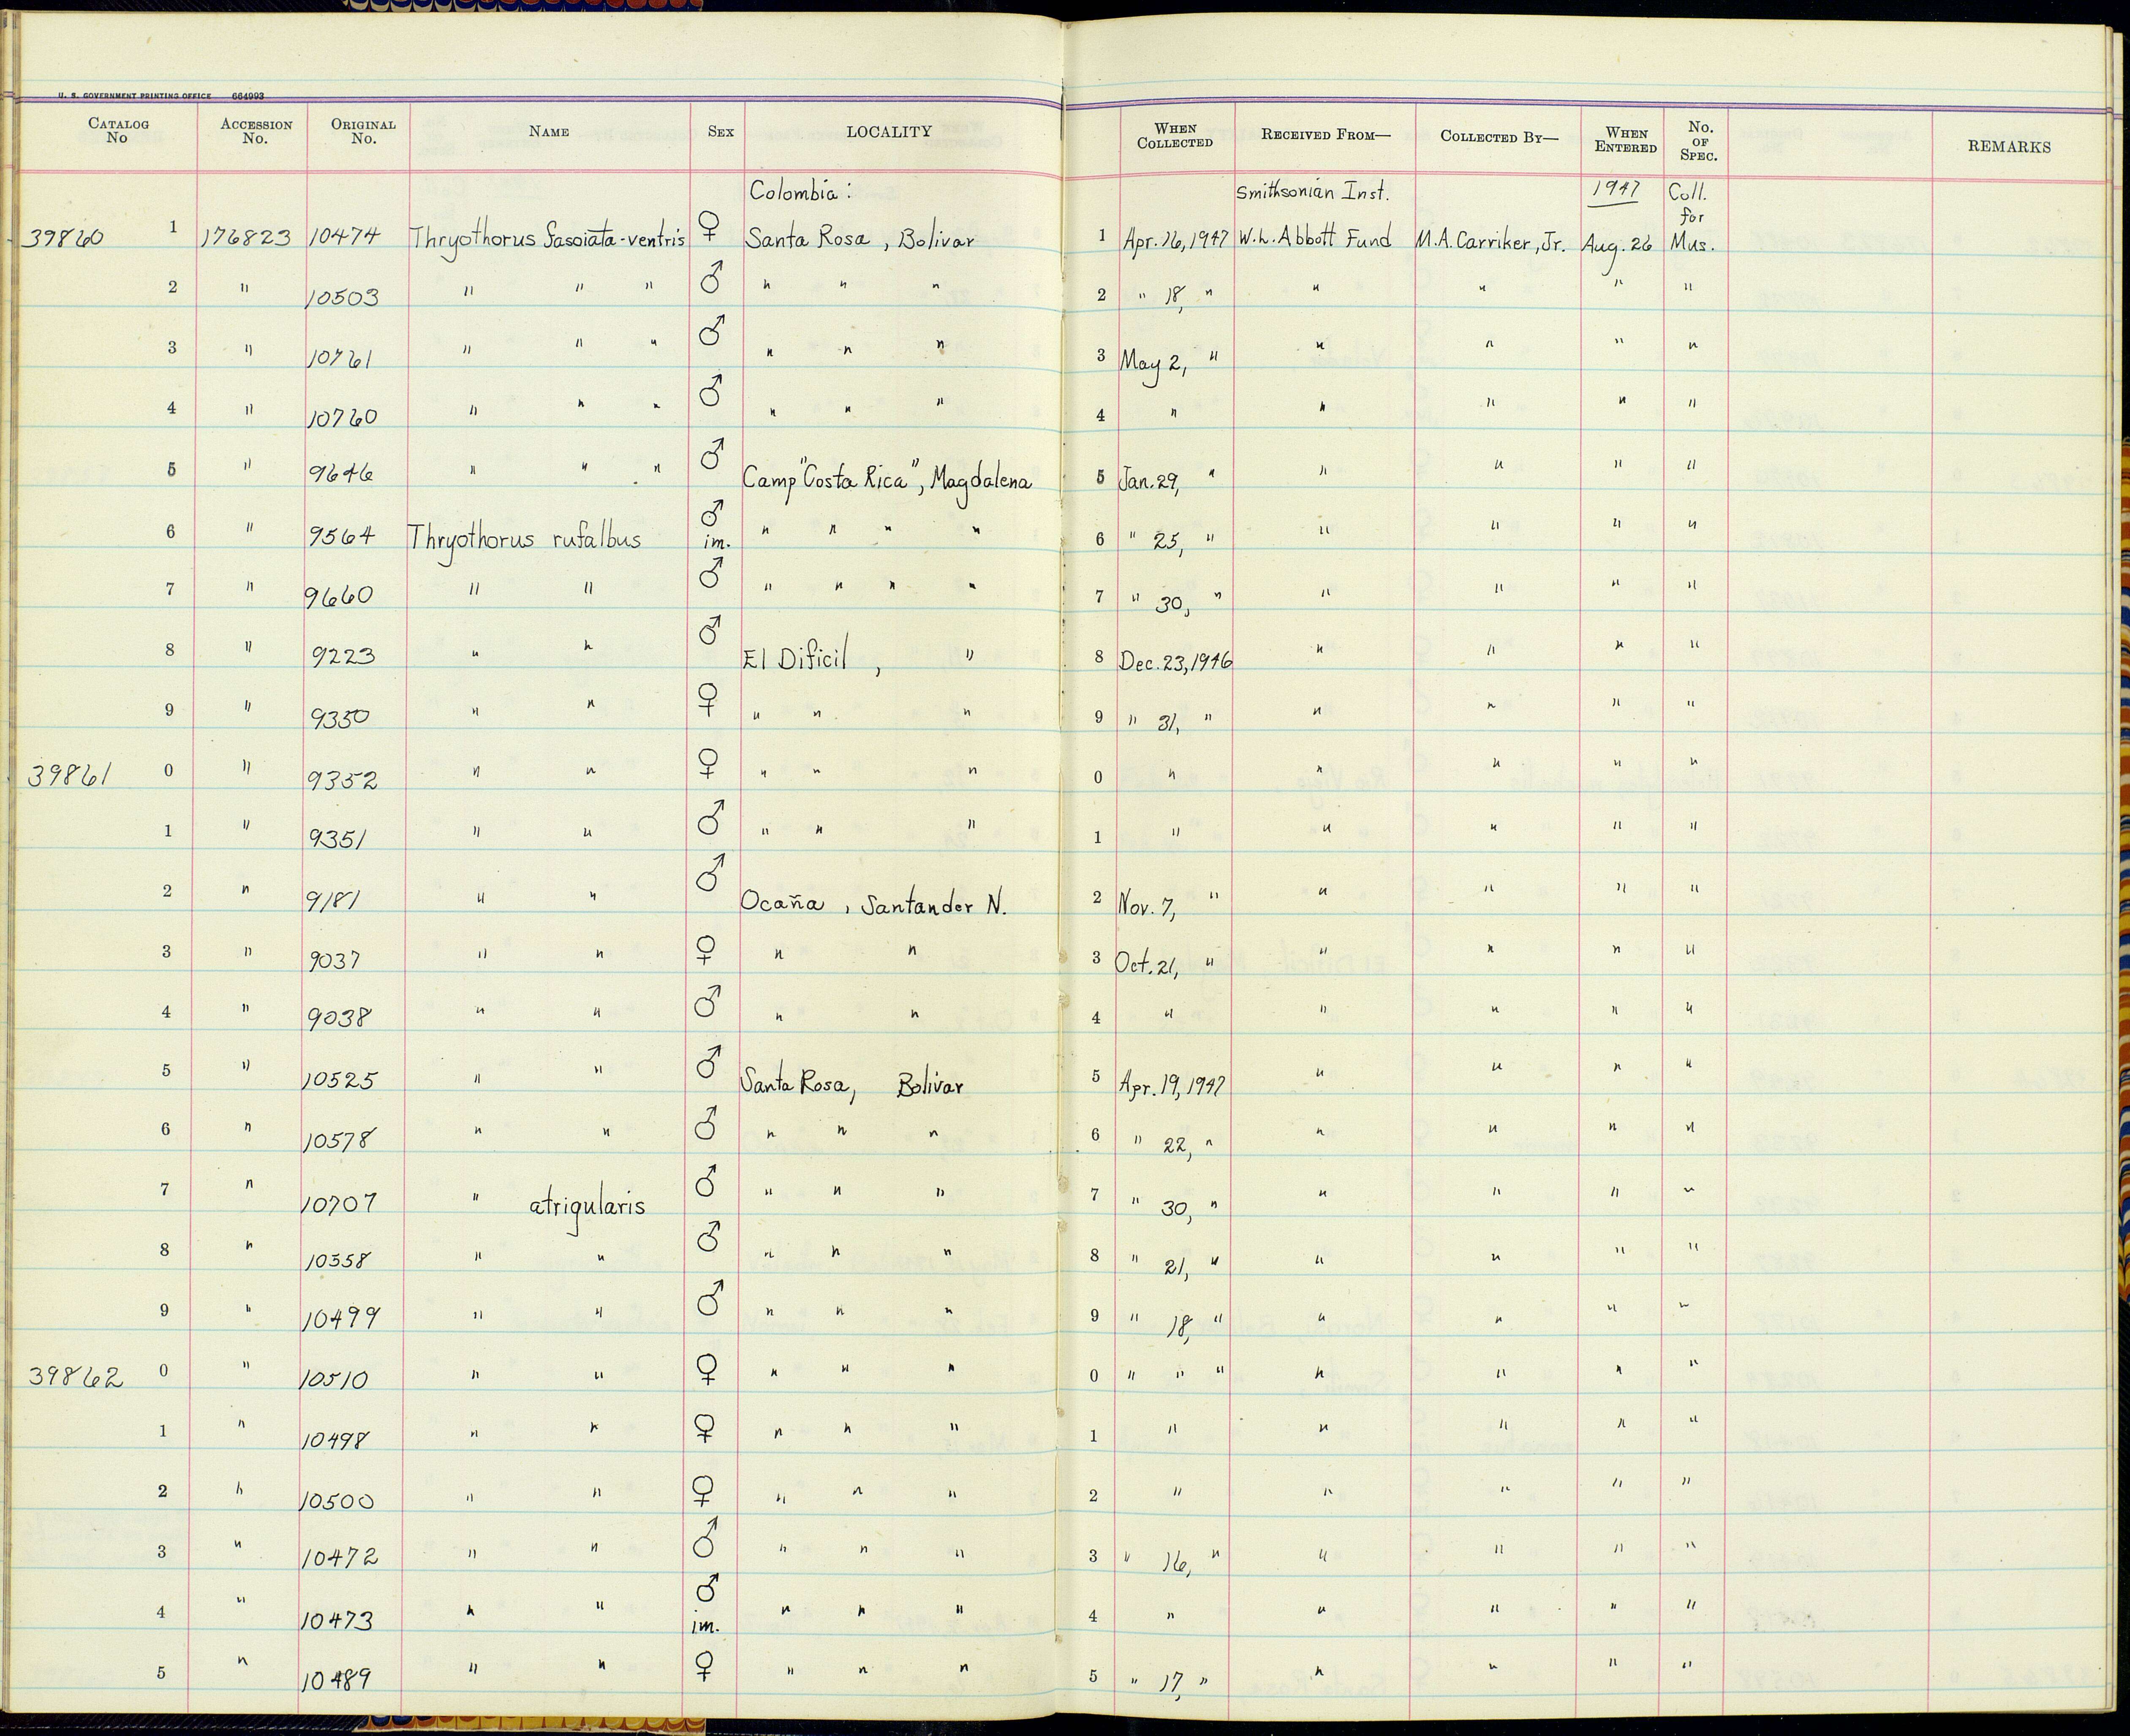 U. S. GOVERNMENT PRINTING OFFICE 664993
CATALOG No ACCESSION No. ORIGINAL No. NAME SEX LOCALITY WHEN COLLECTED RECEIVED FROM— COLLECTED BY— WHEN ENTERED No. OF SPEC. REMARKS
Colombia: Smithsonian Inst. 1947 Coll. for
39860 1 176823 10474 Thryothorus fasciata-ventris ♀ Santa Rosa, Bolivar 1 Apr. 16, 1947 W.L. Abbott Fund M.A. Carriker, Jr. Aug. 26 Mus.
2 " 10503 " " " ♂ " " " 2 " 18, " " " " "
3 " 10761 " " " ♂ " " " 3 May 2, " " " " "
4 " 10760 " " " ♂ " " " 4 " " " " "
5 " 9646 " " " ♂ Camp "Costa Rica", Magdalena 5 Jan. 29, " " " " "
6 " 9564 Thryothorus rufalbus ♂ im. " " " " 6 " 25, " " " " "
7 " 9660 " " ♂ " " " " 7 " 30, " " " " "
8 " 9223 " " ♂ El Dificil, " 8 Dec. 23, 1946 " " " "
9 " 9350 " " ♀ " " " 9 " 31, " " " " "
39861 0 " 9352 " " ♀ " " " 0 " " " " "
1 " 9351 " " ♂ " " " 1 " " " " "
2 " 9181 " " ♂ Ocaña, Santander N. 2 Nov. 7, " " " " "
3 " 9037 " " ♀ " " 3 Oct. 21, " " " " "
4 " 9038 " " ♂ " " 4 " " " " "
5 " 10525 " " ♂ Santa Rosa, Bolivar 5 Apr. 19, 1947 " " " "
6 " 10578 " " ♂ " " " 6 " 22, " " " " "
7 " 10707 " atrigularis ♂ " " " 7 " 30, " " " " "
8 " 10558 " " ♂ " " " 8 " 21, " " " " "
9 " 10499 " " ♂ " " " 9 " 18, " " " " "
39862 0 " 10510 " " ♀ " " " 0 " " " " " " "
1 " 10498 " " ♀ " " " 1 " " " " "
2 " 10500 " " ♀ " " " 2 " " " " "
3 " 10472 " " ♂ " " " 3 " 16, " " " " "
4 " 10473 " " ♂ im. " " " 4 " " " " "
5 " 10489 " " ♀ " " " 5 " 17, " " " " "